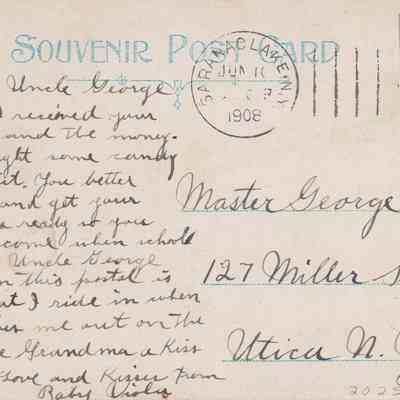 SOUVENIR POST CARD
SARANAC LAKE N.Y.
JUN
1908
Uncle George
I received your
and the money.
ght some candy
it. You better
and get your
ready so you
come when schole
Uncle George
n this postal is
at I ride in when
me out on the
Grandma a Kiss
Love and Kisses from
Baby Viola
Master George
127 Miller S
Utica N.